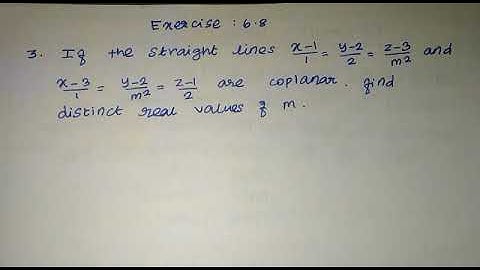 Exercise : 6.8
3. If the straight lines x-1/1 = y-2/2 = z-3/m² and
x-3/1 = y-2/m² = z-1/2 are coplanar. find
distinct real values of m.